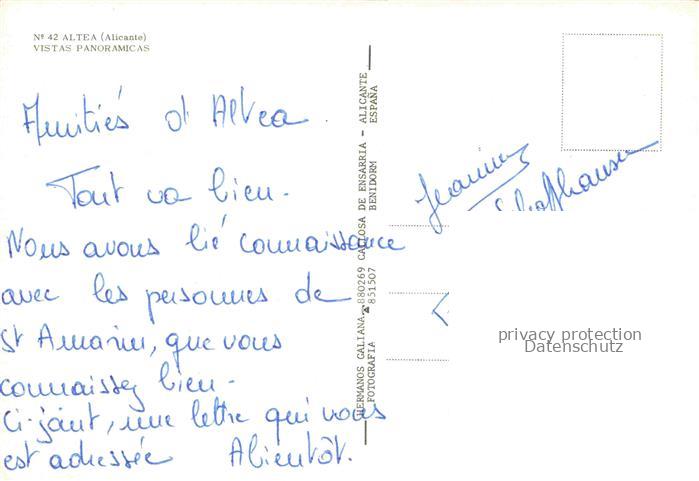 Nº 42 ALTEA (Alicante)
VISTAS PANORAMICAS
Amitiés d'Altea.
Tout va bien.
Nous avons lié connaissance
avec les personnes de
St Amarin, que vous
connaissez bien.
Ci-joint, une lettre qui vous
est adressée A bientôt.
HERMANOS GALIANA ☎ 880269 CALLOSA DE ENSARRIA - ALICANTE
FOTOGRAFIA 851507 BENIDORM ESPAÑA
Schaffhauser
privacy protection
Datenschutz